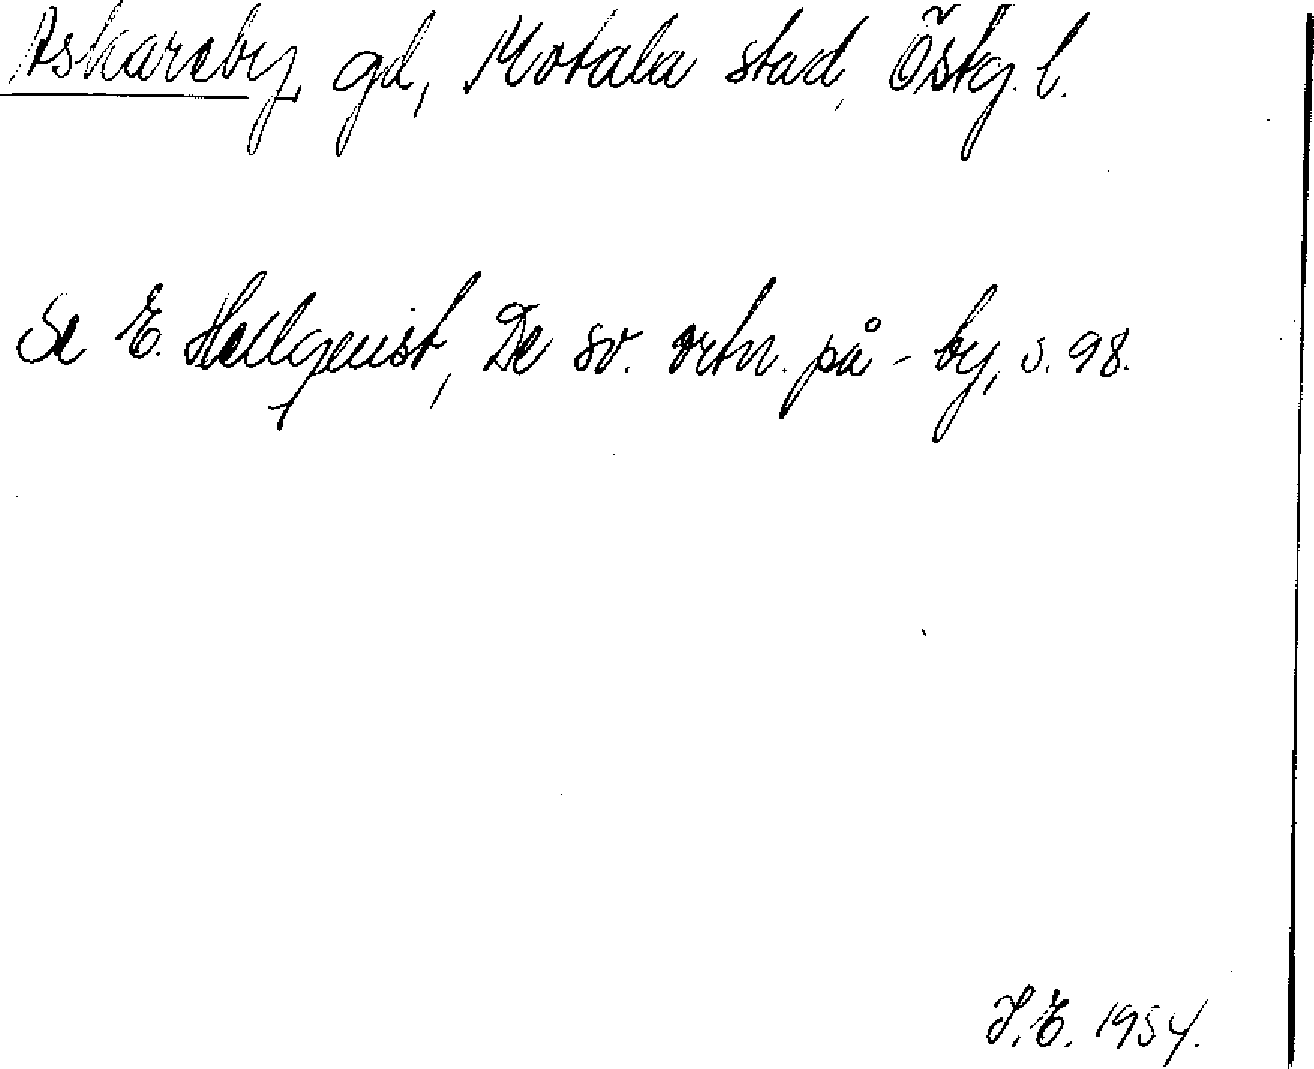 Askareby, gd, Motala stad, Östg. l.
Se E. Hellquist, De sv. ortn. på -by, s. 98.
J.E. 1954.